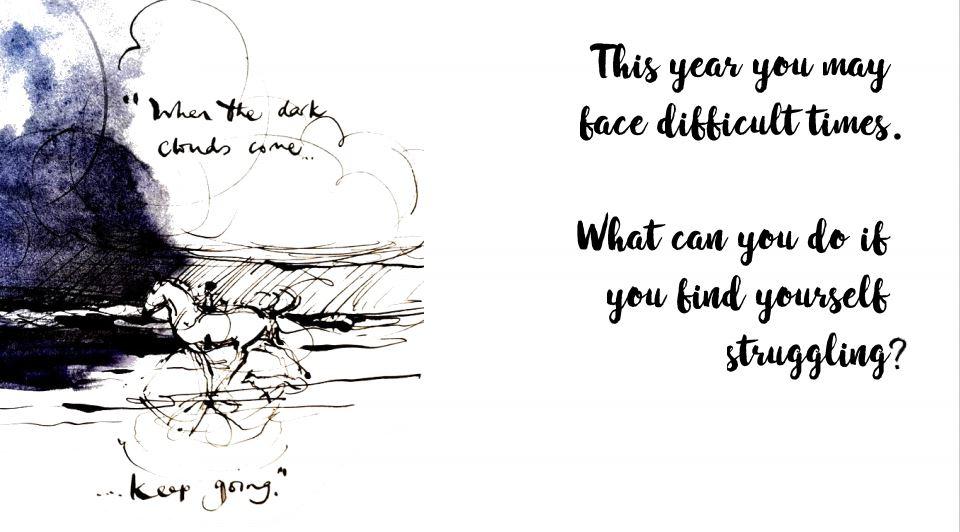 "When the dark
clouds come...
...keep going."
This year you may
face difficult times.
What can you do if
you find yourself
struggling?